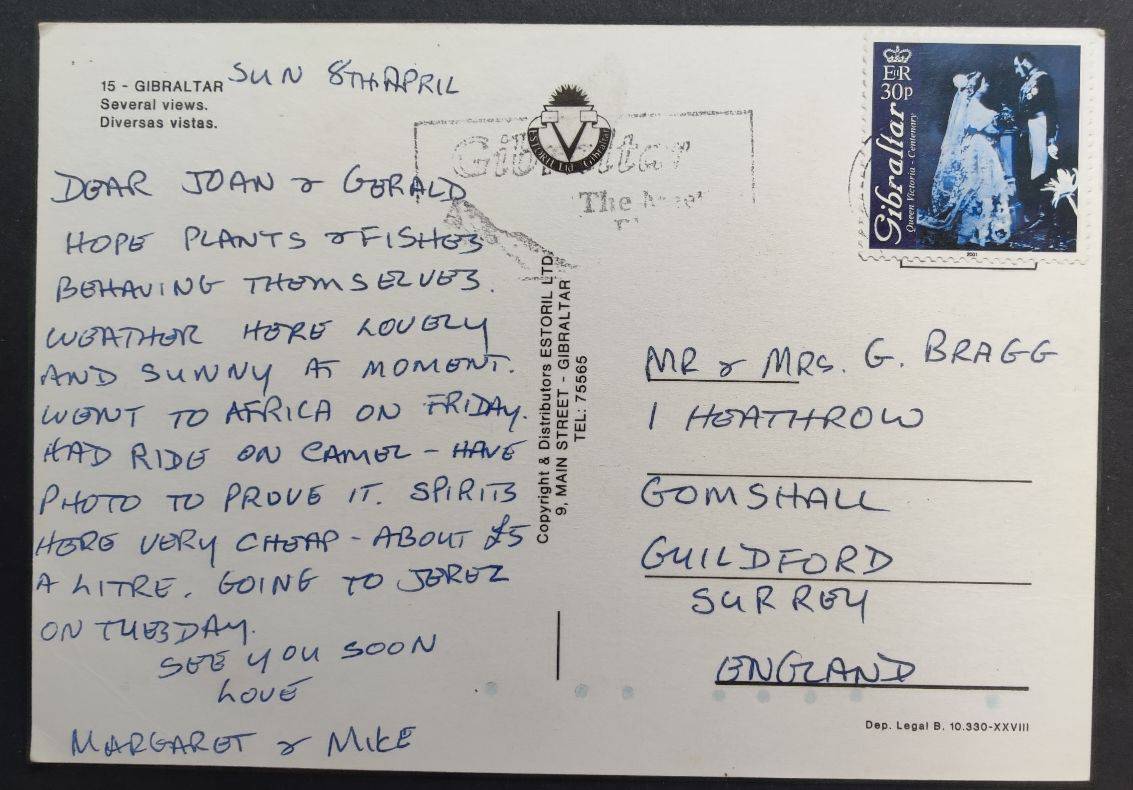 15 - GIBRALTAR
Several views.
Diversas vistas.
SUN 8TH APRIL
DEAR JOAN & GERALD
HOPE PLANTS & FISHES
BEHAVING THEMSELVES.
WEATHER HERE LOVELY
AND SUNNY AT MOMENT.
WENT TO AFRICA ON FRIDAY.
HAD RIDE ON CAMEL - HAVE
PHOTO TO PROVE IT. SPIRITS
HERE VERY CHEAP - ABOUT £5
A LITRE. GOING TO JEREZ
ON TUESDAY.
SEE YOU SOON
LOVE
MARGARET & MIKE
ESTORIL Ltd - Gibraltar
Gibraltar
The
Copyright & Distributors ESTORIL LTD.
9, MAIN STREET - GIBRALTAR
TEL: 75565
E II R
30p
Gibraltar
Queen Victoria - Centenary
2001
MR & MRS. G. BRAGG
1 HEATHROW
GOMSHALL
GUILDFORD
SURREY
ENGLAND
Dep. Legal B. 10.330-XXVIII